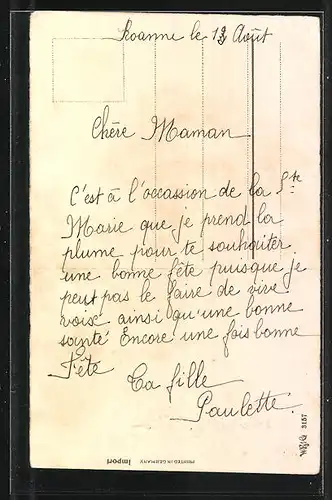 Roanne le 13 Août
Chère Maman
C'est à l'occasion de la Ste
Marie que je prend la
plume pour te souhaiter
une bonne fête puisque je
peut pas le faire de vive
voix ainsi qu'une bonne
santé Encore une fois bonne
Fête
Ta fille
Paulette
3157
PRINTED IN GERMANY Import